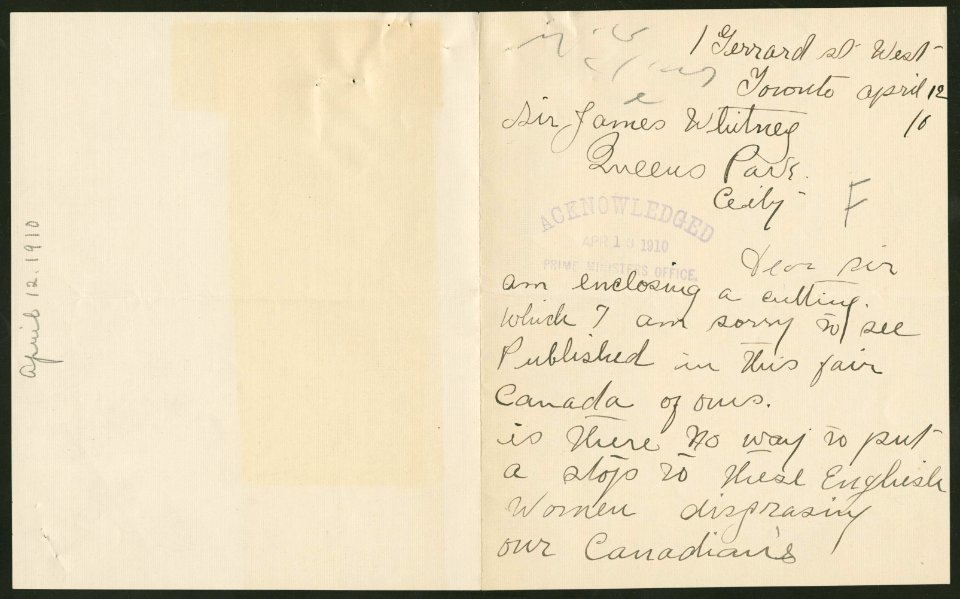 April 12. 1910
1 Gerrard st West
Toronto april 12
10
Sir James Whitney
Queens Park.
City
F
ACKNOWLEDGED
APR 13 1910
PRIME MINISTERS OFFICE.
Dear Sir
am enclosing a cutting.
which I am sorry to see
Published in this fair
Canada of ours.
is there no way to put
a stop to these English
Women disgrasing
our Canadian's